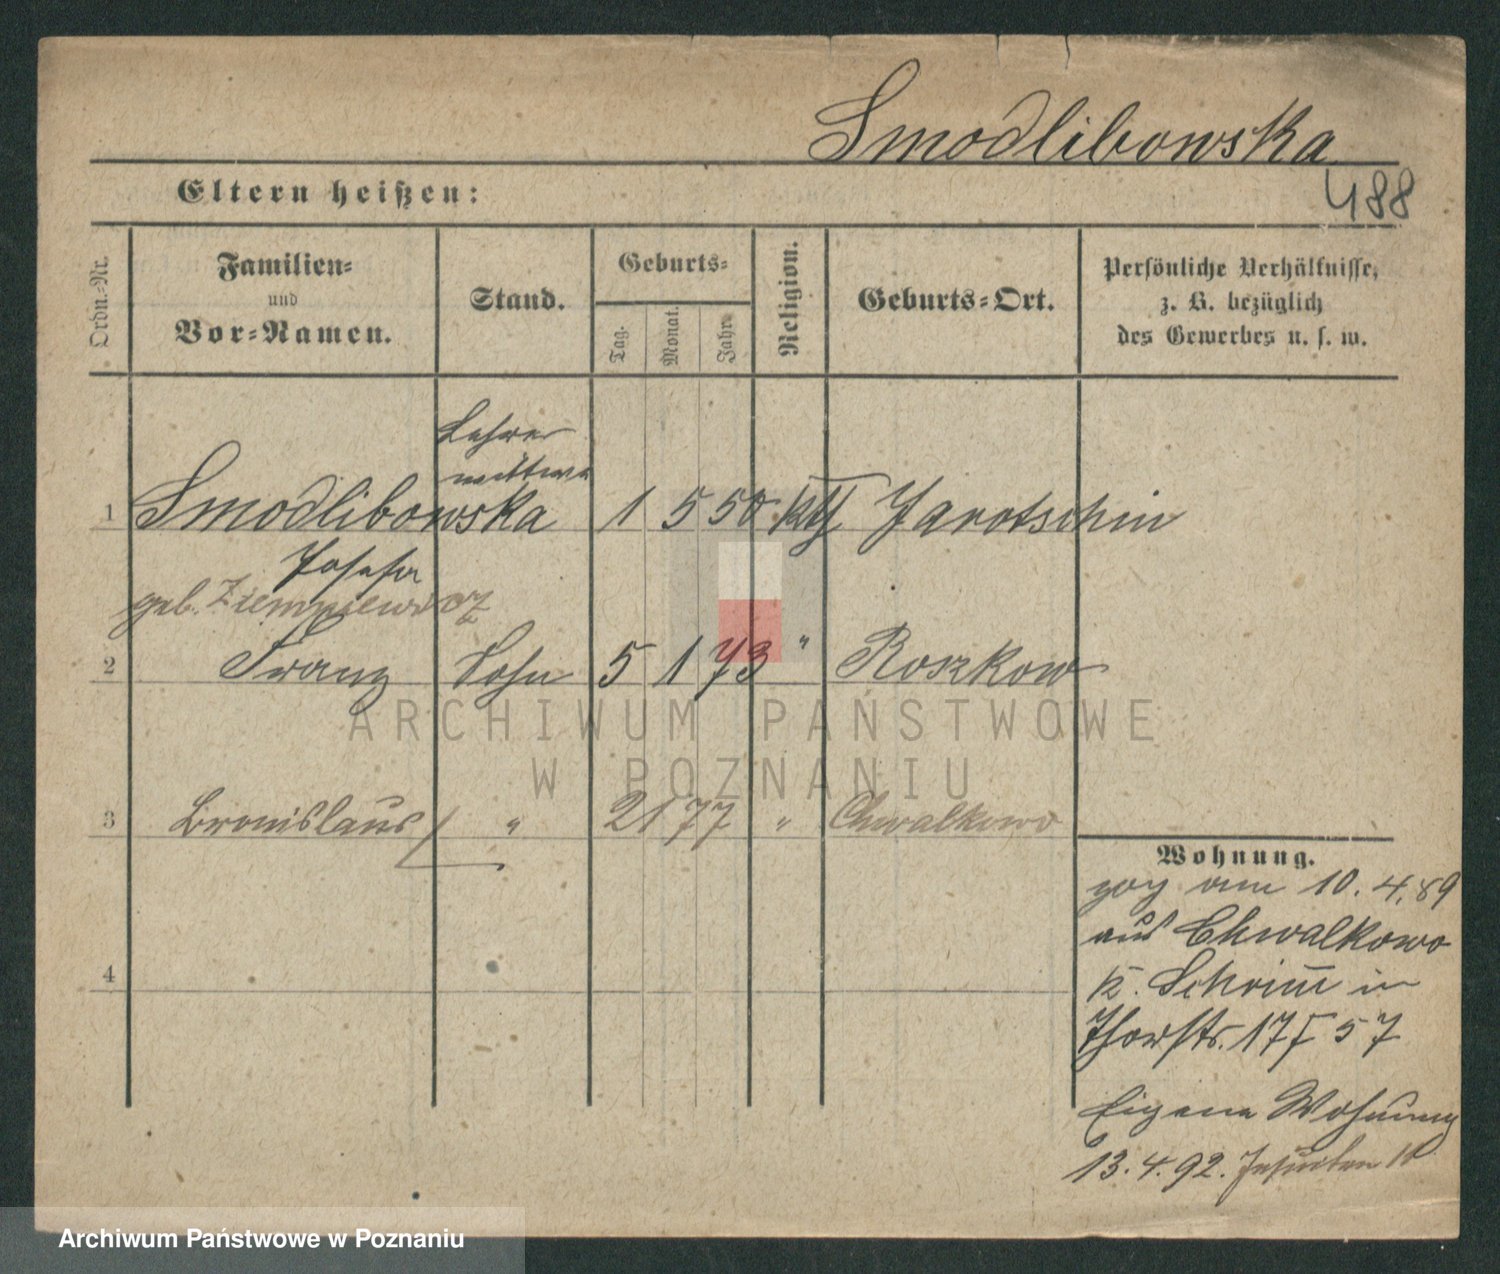 Smodlibowska
488
Eltern heißen:
Ordn.-Nr.
Familien-
und
Vor-Namen.
Stand.
Geburts-
Tag.
Monat.
Jahr.
Religion.
Geburts-Ort.
Persönliche Verhältnisse,
z. B. bezüglich
des Gewerbes u. s. w.
Lehrer
wittwe
1 Smodlibowska 1 5 50 kth Jarotschin
Josefa
geb. Ziemniewicz
2 Franz Sohn 5 1 73 " Roszkow
ARCHIWUM PAŃSTWOWE
W POZNANIU
3 Bronislaus " 21 77 " Chwalkowo
Wohnung.
zog am 10.4.89
aus Chwalkowo
K. Schrim in
Thorstr. 17 I 57
4
Eigene Wohnung
13.4.92. Jesuiten
Archiwum Państwowe w Poznaniu